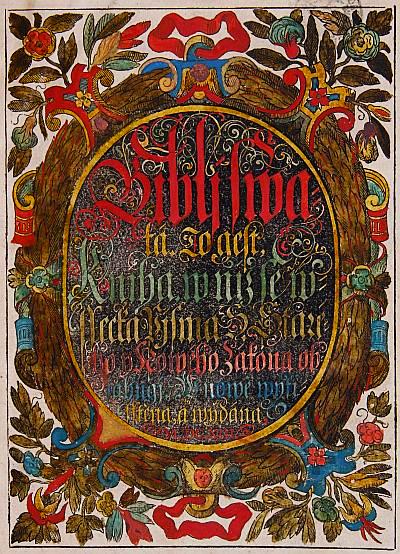 Biblj swa
ta. To gest,
Kniha, w njž se w
ssecka Pjsma S. Stare
ho y Noweho Zakona ob
sahugj. W nowe wyti
sstena, a wydana.